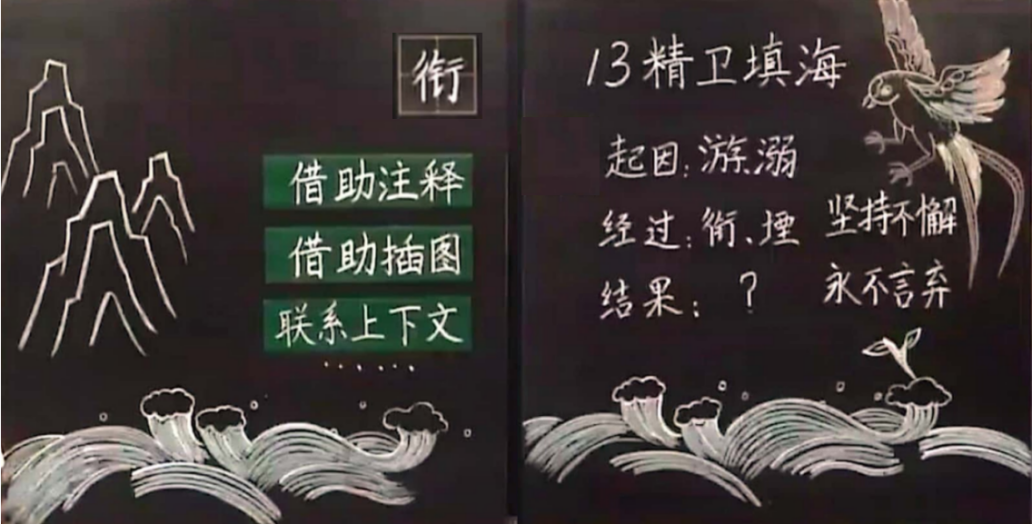 衔
借助注释
借助插图
联系上下文
......
13 精卫填海
起因:游溺
经过:衔、堙
坚持不懈
结果:?
永不言弃